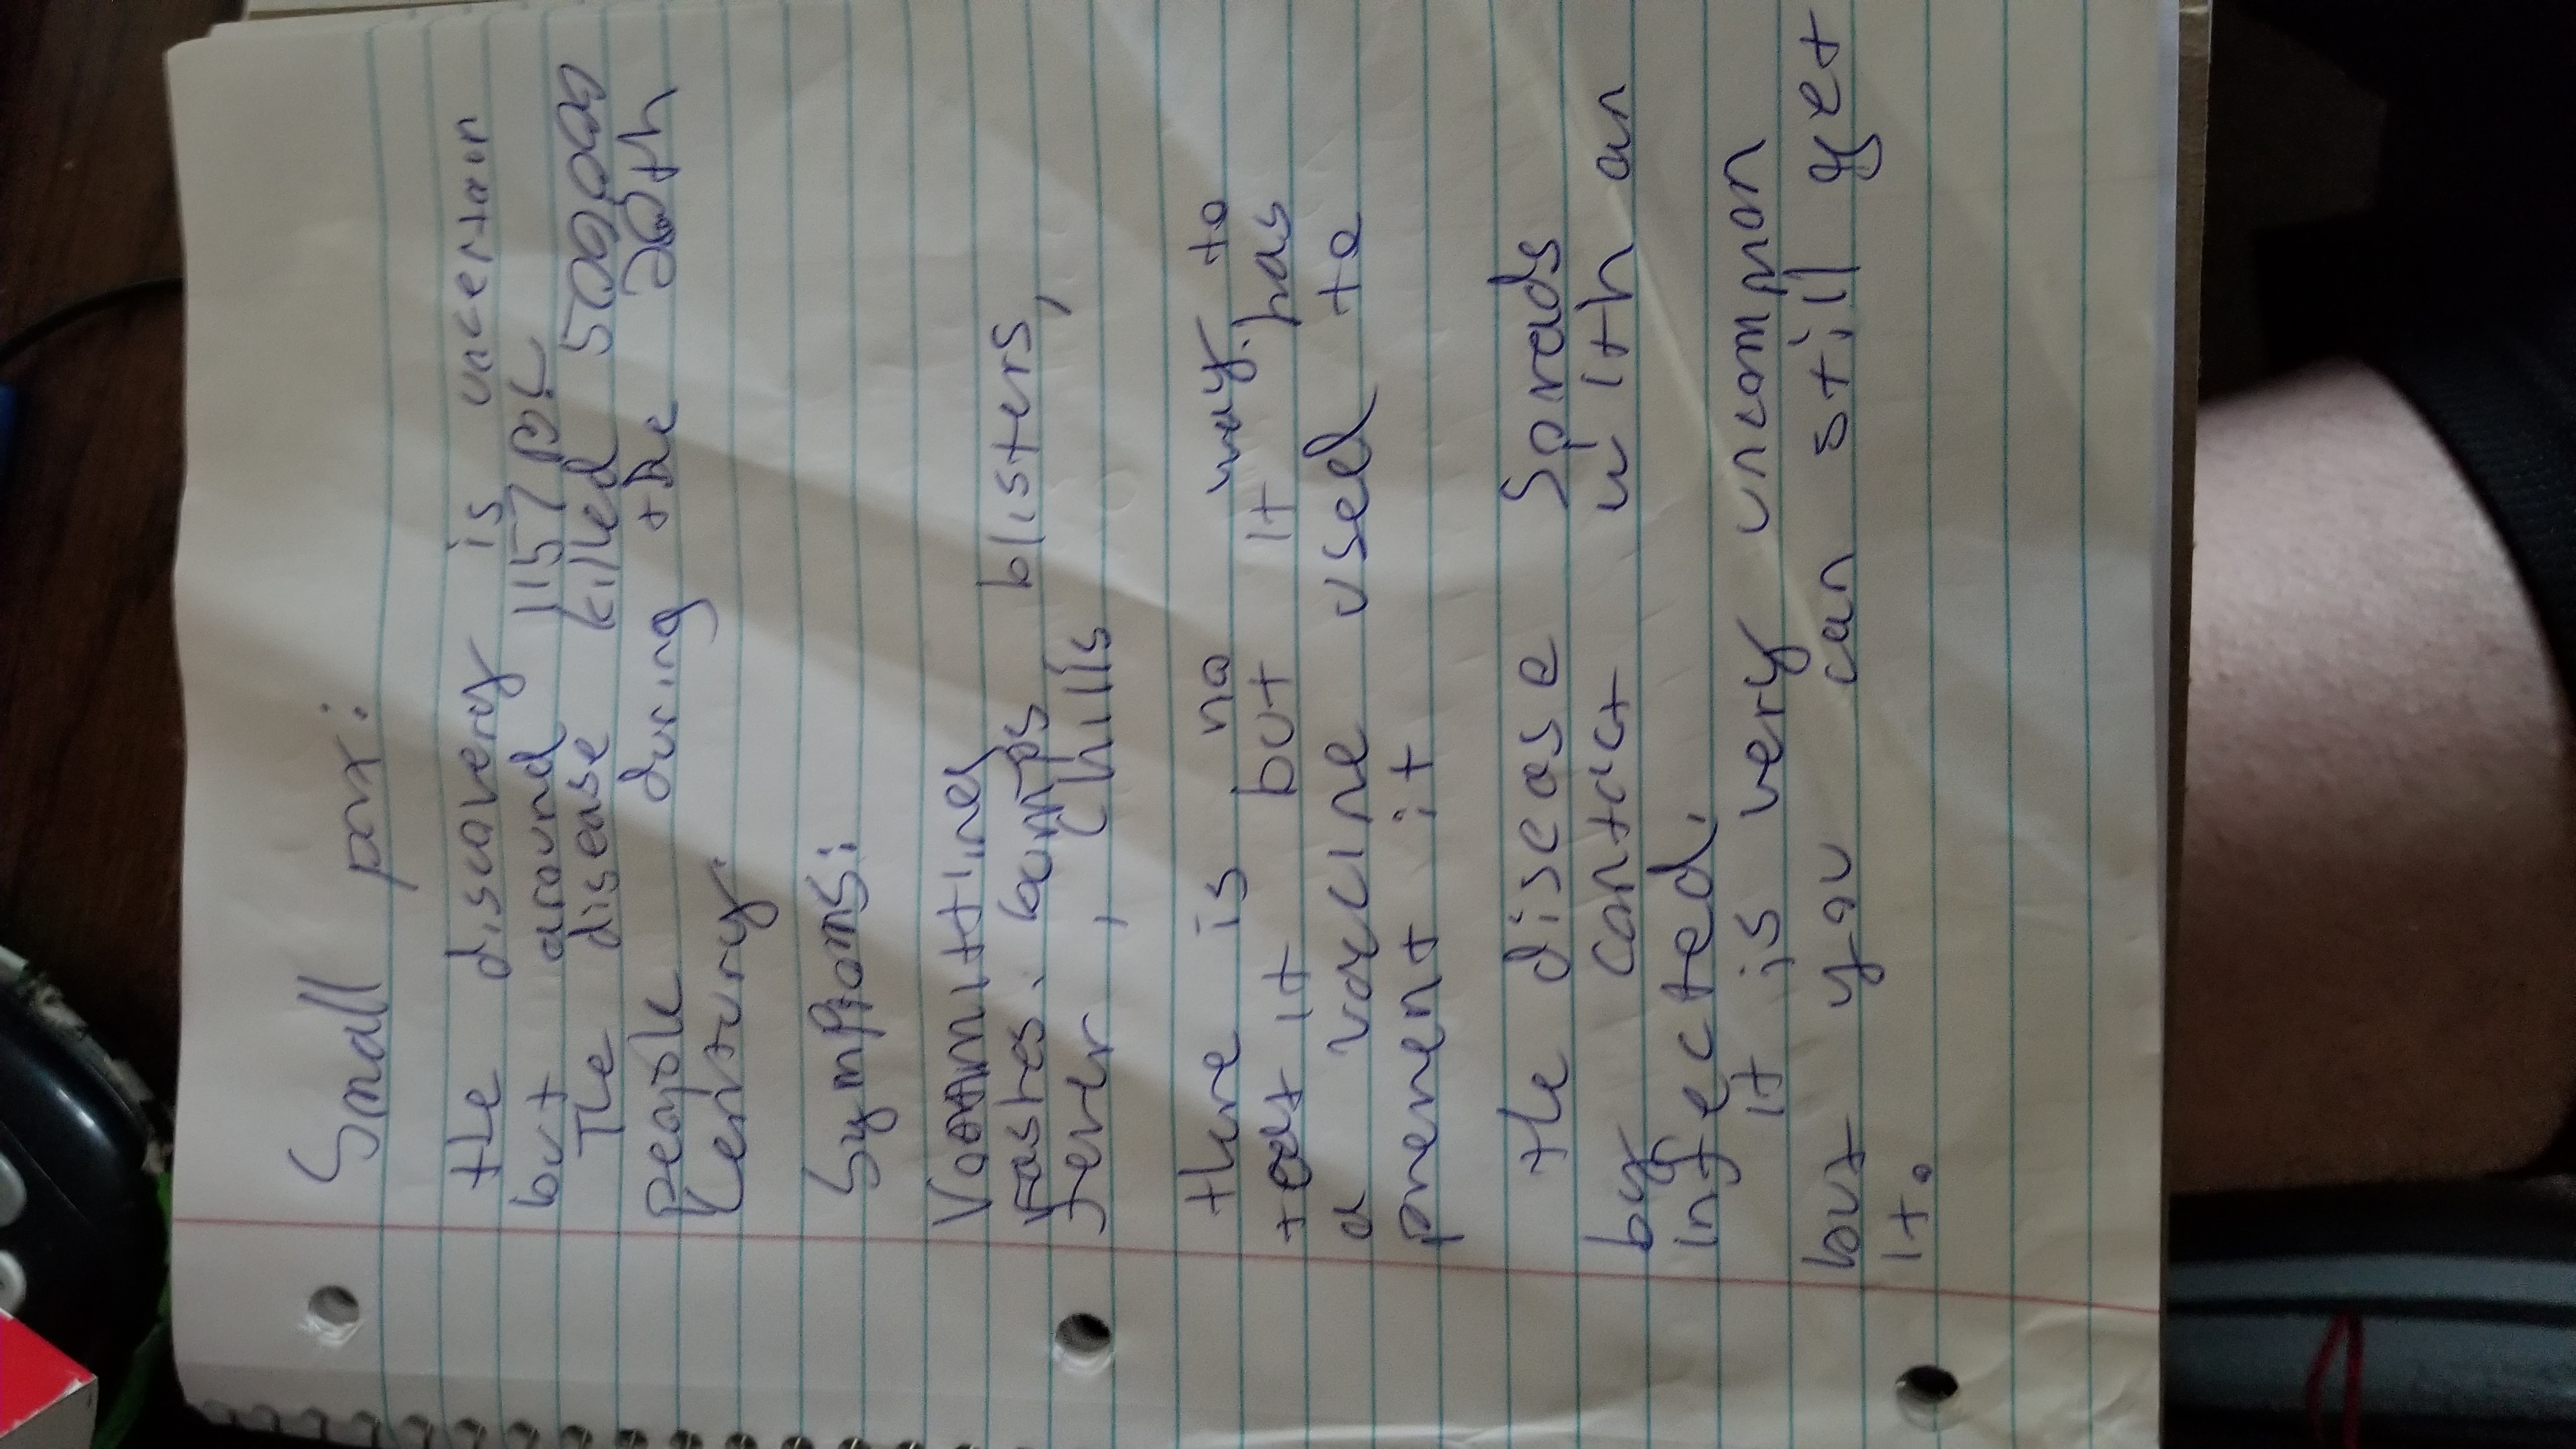 Small pox:
the discovery is uncertain
but around 1157 BC
The disease killed 500000
people during the 20th
Century.
Symptoms:
Vomitting blisters,
rashes. bumps
fever, chills
there is no way to
it but it has
a vaccine used to
prevent it
the disease spreads
by contact with an
infected.
it is very uncommon
but you can still get
it.